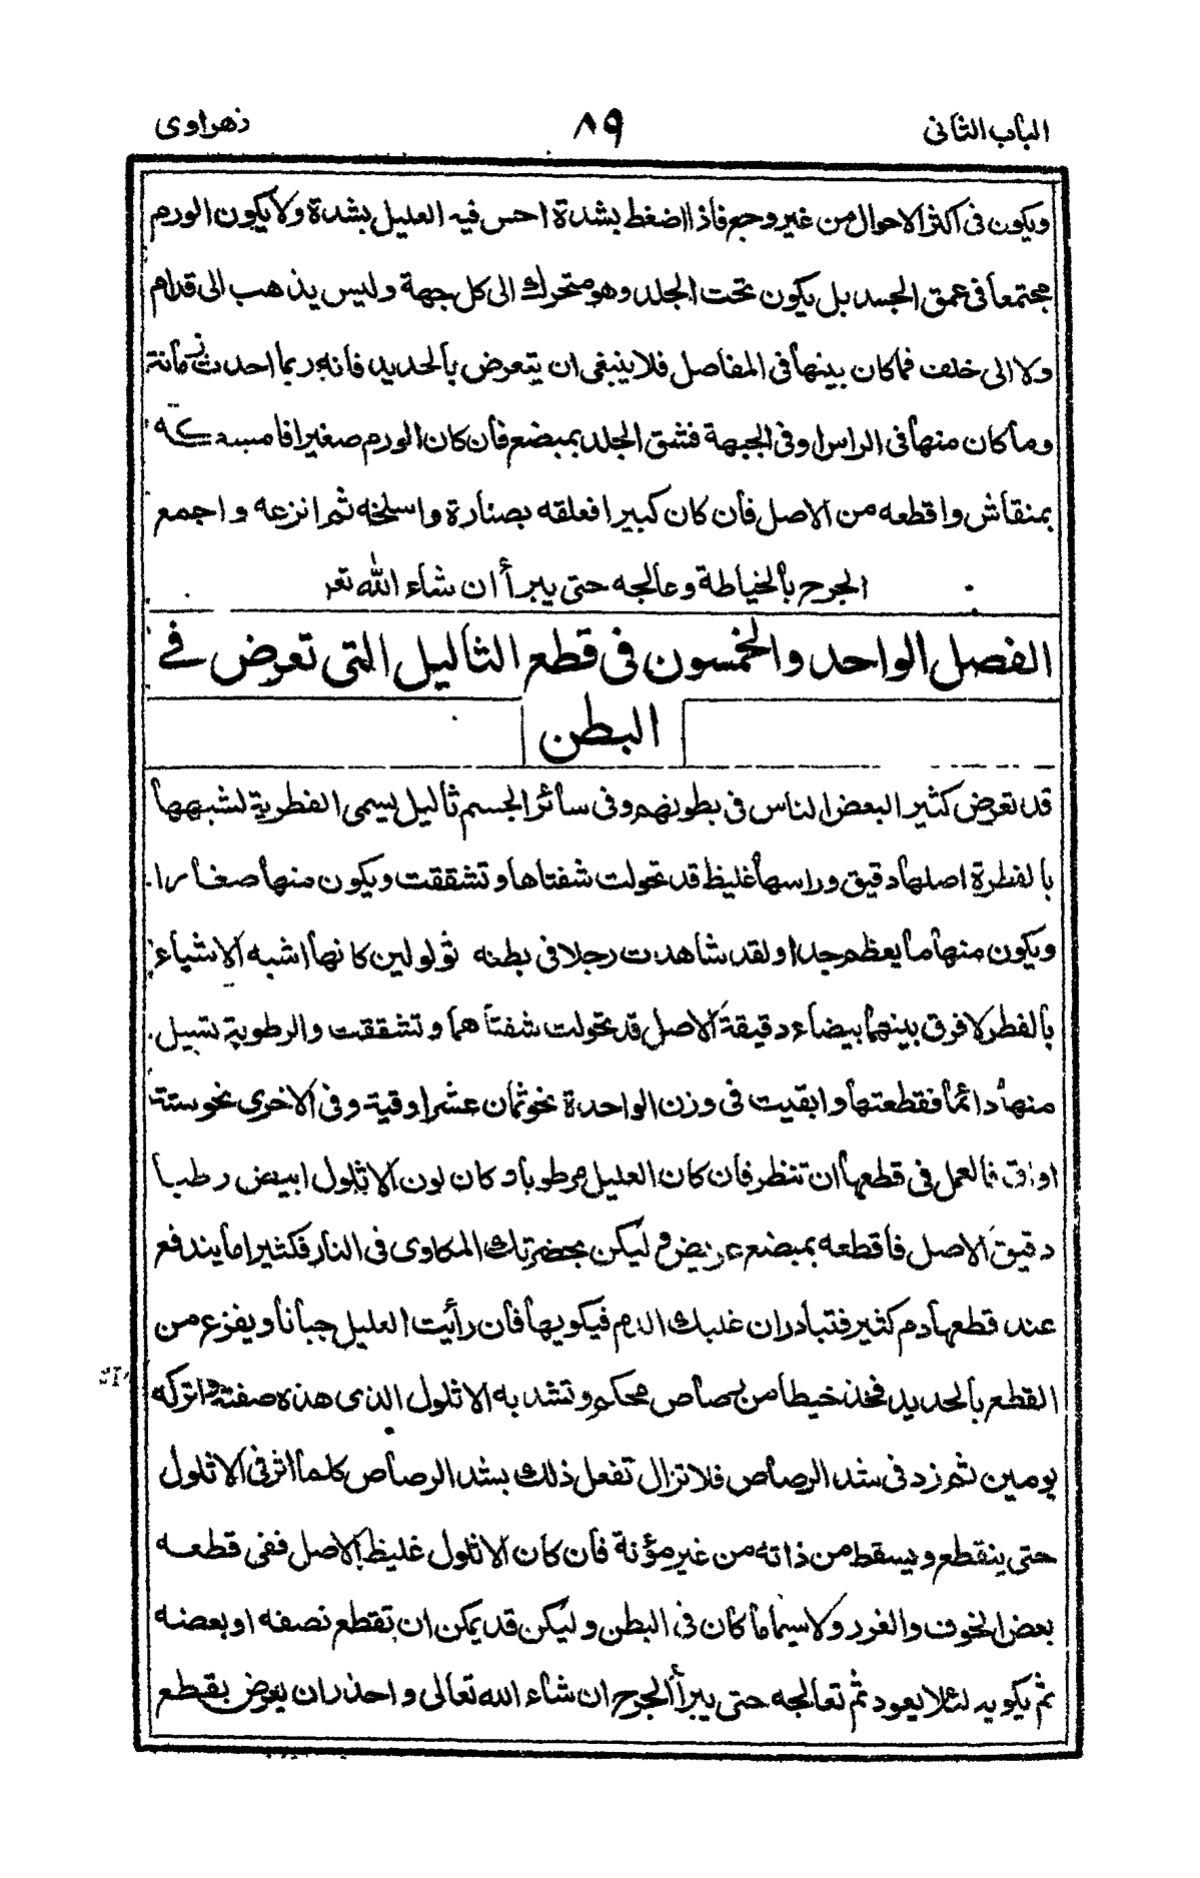 الباب الثانى ٨٩ زهراوى
ويكون فى اكثر الاحوال من غير وجع فاذا اضغط بشدة احس فيه العليل بشدة ولا يكون الورم
مجتمعا فى عمق الجسد بل يكون تحت الجلد وهو متحرك الى كل جهة وليس يذهب الى قدام
ولا الى خلف فما كان بينها فى المفاصل فلا ينبغى ان يتعرض بالحديد فانه ربما احدث زمانة
وما كان منها فى الراس او فى الجبهة فشق الجلد بمبضع فان كان الورم صغيرا فامسكه
بمنقاش واقطعه من الاصل فان كان كبيرا فعلقه بصنارة واسلخه ثم انزعه واجمع
الجرح بالخياطة وعالجه حتى يبرأ ان شاء الله تعر
الفصل الواحد والخمسون فى قطع الثاليل التى تعرض فے
البطن
قد تعرض كثيرا لبعض الناس فى بطونهم وفى سائر الجسم ثاليل يسمى الفطرية لشبهها
بالفطرة اصلها دقيق وراسها غليظ قد تحولت شفتاها وتشققت ويكون منها صغارا
ويكون منها ما يعظم جدا ولقد شاهدت رجلا فى بطنه ثولولين كانها اشبه الاشياء
بالفطر لا فرق بينهما بيضاء دقيقة الاصل قد تحولت شفتاهما وتشققت والرطوبة تسيل
منها دائما فقطعتها وابقيت فى وزن الواحدة نحو ثمان عشر اوقية وفى الاخرى نحو ستة
اواق فالعمل فى قطعها ان تنظر فان كان العليل مرطوبا وكان لون الاثلول ابيض رطبا
دقيق الاصل فاقطعه بمبضع عريض وليكن بحضرتك المكاوى فى النار فكثيرا ما يندفع
عند قطعها دم كثير فتبادر ان غلبك الدم فيكويها فان رأيت العليل جبانا ويفزع من
القطع بالحديد فخذ خيطا من رصاص محكم وتشد به الاثلول الذى هذه صفته واتركه
يومين ثم زد فى شد الرصاص فلا تزال تفعل ذلك بشد الرصاص كلما اثر فى الاثلول
حتى ينقطع ويسقط من ذاته من غير مؤنة فان كان الاثلول غليظ الاصل ففى قطعه
بعض الخوف والغرر ولا سيما ما كان فى البطن وليكن قد يمكن ان تقطع نصفه او بعضه
ثم يكويه لئلا يعود ثم تعالجه حتى يبرأ الجرح ان شاء الله تعالى واحذر ان يعرض بقطع